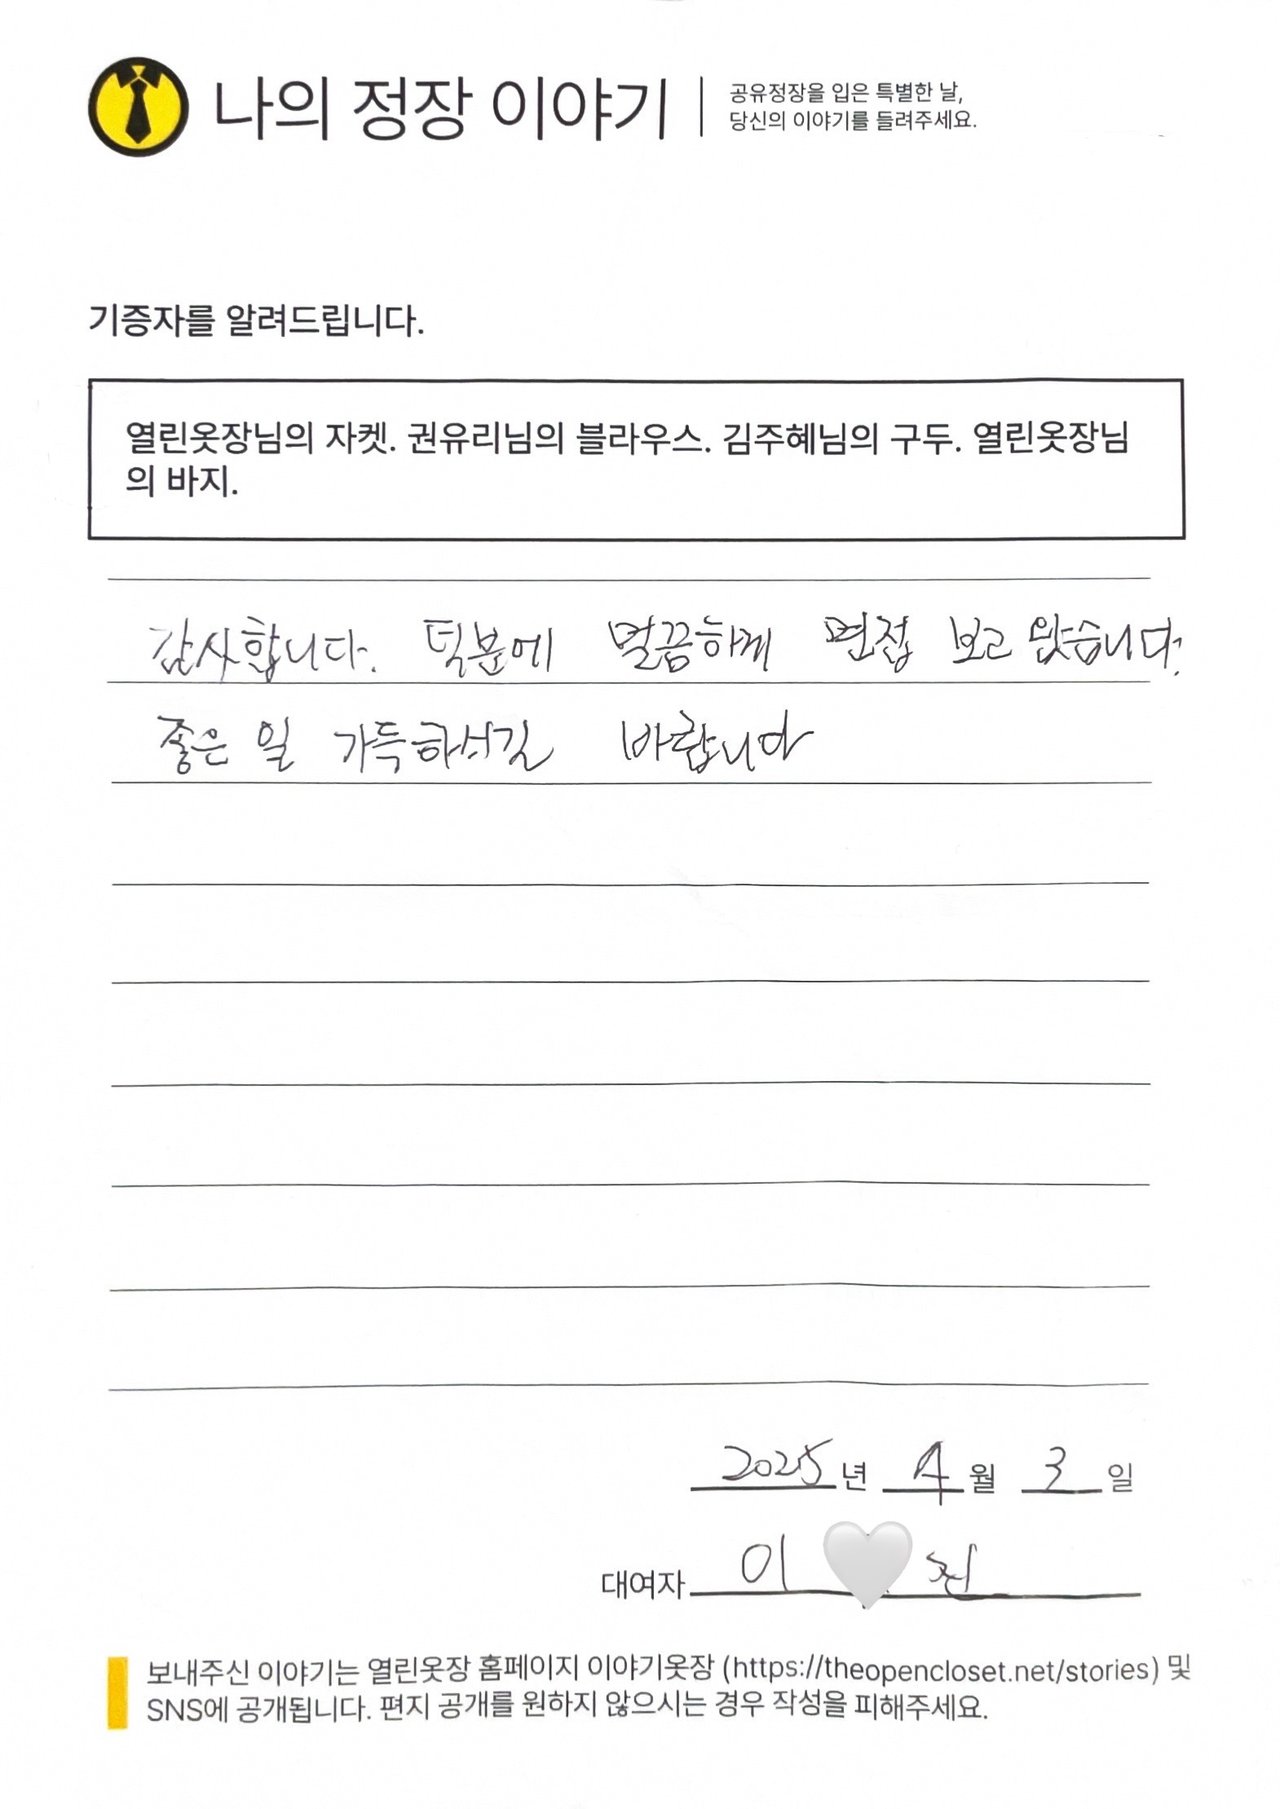 나의 정장 이야기
공유정장을 입은 특별한 날,
당신의 이야기를 들려주세요.
기증자를 알려드립니다.
열린옷장님의 자켓. 권유리님의 블라우스. 김주혜님의 구두. 열린옷장님
의 바지.
감사합니다. 덕분에 멀끔하게 면접 보고 왔습니다.
좋은 일 가득하시길 바랍니다
2025년 4월 3일
대여자 이 진
보내주신 이야기는 열린옷장 홈페이지 이야기옷장 (https://theopencloset.net/stories) 및
SNS에 공개됩니다. 편지 공개를 원하지 않으시는 경우 작성을 피해주세요.